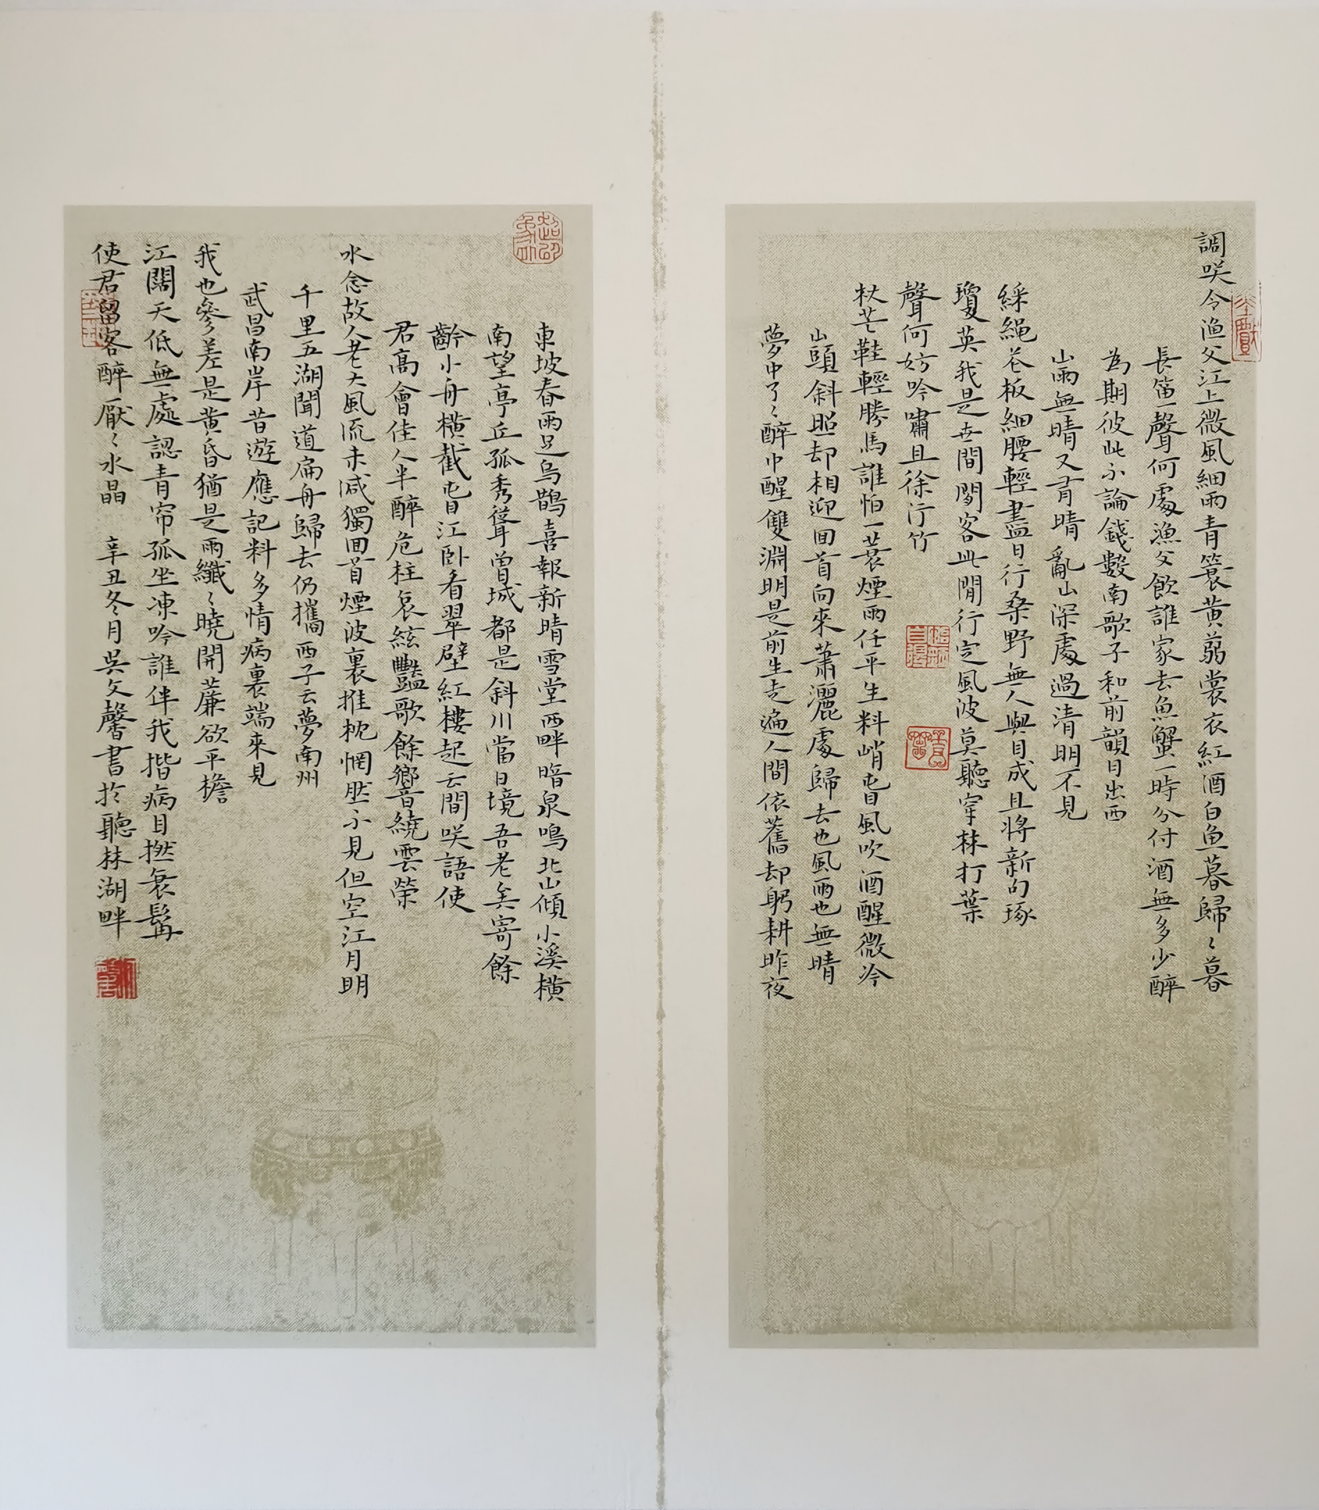 調咲令漁父江上微風細雨青簑黄蒻裳衣紅酒白魚暮歸〻暮
長笛一聲何處漁父飲誰家去魚蟹一時分付酒無多少醉
為期彼此不論錢數南歌子和前韻日出西
山雨無晴又有晴亂山深處過清明不見
綵繩花板細腰輕盡日行桑野無人與目成且將新句琢
瓊英我是世間閒客此閒行定風波莫聽穿林打葉
聲何妨吟嘯且徐行竹
杖芒鞋輕勝馬誰怕一蓑煙雨任平生料峭春風吹酒醒微冷
山頭斜照却相迎回首向來蕭灑處歸去也風雨也無晴
夢中了〻醉中醒雙淵明是前生走遍人間依舊却躬耕昨夜
東坡春雨足烏鵲喜報新晴雪堂西畔暗泉鳴北山傾小溪橫
南望亭丘孤秀聳曾城都是斜川當日境吾老矣寄餘
齡小舟橫截春江卧看翠壁紅樓起雲間咲語使
君高會佳人半醉危柱哀絃豔歌餘響繞雲縈
水念故人老大風流未减獨回首煙波裏推枕惘然不見但空江月明
千里五湖聞道扁舟歸去仍攜西子雲夢南州
武昌南岸昔遊應記料多情病裏端來見
我也參差是黄昏猶是雨纖〻曉開簾欲平檐
江闊天低無處認青帘孤坐凍吟誰伴我揩病目撚衰髯
使君留客醉厭〻水晶 辛丑冬月吳文馨書於聽林湖畔